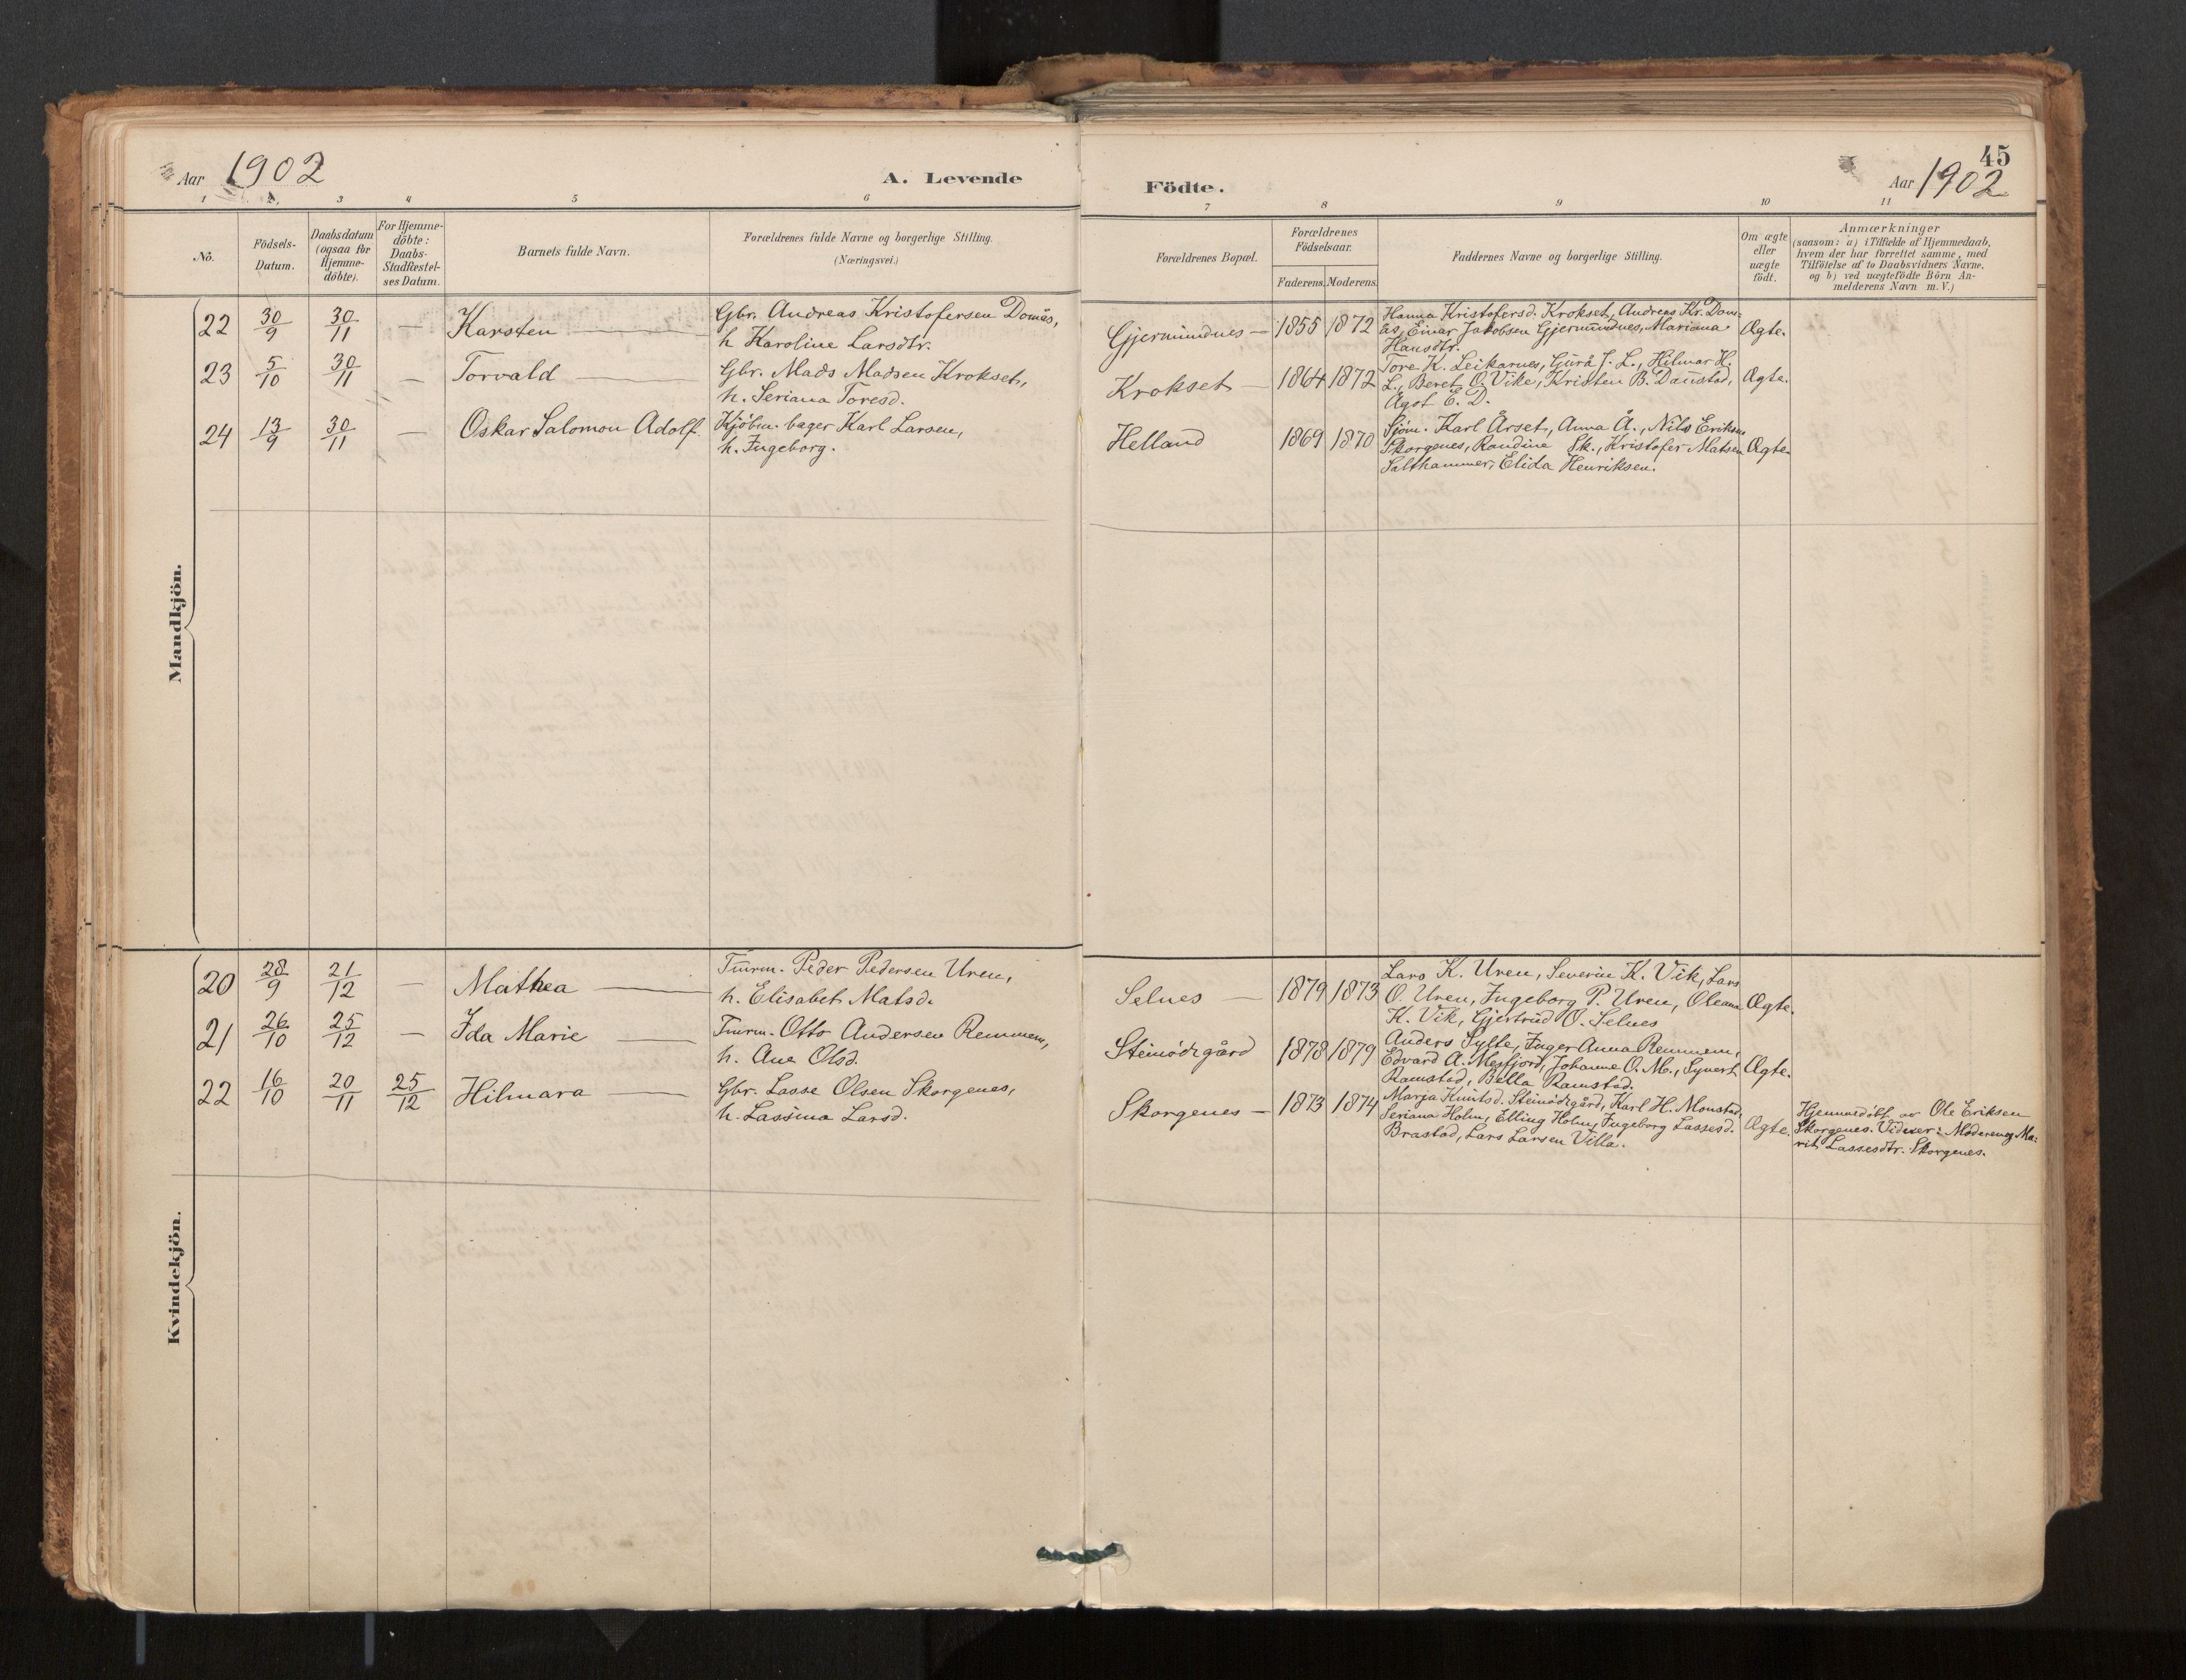 Aar 1902
A. Levende
Födte.
45
Aar 1902
1 2 3 4 5 6 7 8 9 10 11
No.
Födsels-
Datum.
Daabsdatum
(ogsaa för
Hjemme-
döbte).
For Hjemme-
döbte:
Daabs-
Stadfæstel-
ses Datum.
Barnets fulde Navn.
Forældrenes fulde Navne og borgerlige Stilling.
(Næringsvei.)
Forældrenes Bopæl.
Forældrenes
Födselsaar.
Faderens. Moderens.
Faddernes Navne og borgerlige Stilling.
Om ægte
eller
uægte
födt.
Anmærkninger
(saasom: a) i Tilfælde af Hjemmedaab,
hvem der har forrettet samme, med
Tilföielse af to Daabsvidners Navne,
og b) ved uægtefödte Börn An-
melderens Navn m. V.)
Mandkjön.
22 30/9 30/11 — Karsten — Gbr. Andreas Kristofersen Domås,
h. Karoline Larsdtr.
Gjermundnes — 1855 1872 Hanna Kristofersd. Krokset, Andreas Kr. Dom-
ås, Einar Jakobsen Gjermundnes, Mariana
Hansdtr.
Ægte.
23 5/10 30/11 — Torvald — Gbr. Mads Madsen Krokset,
h. Seriana Toresd.
Krokset — 1864 1872 Tore K. Leikarnes, Gurå J. L., Hilmar H.
L., Beret O. Vike, Kristen B. Daustad,
Agot E. D.
Ægte.
24 13/9 30/11 — Oskar Salomon Adolf. Kjöbm. bager Karl Larsen,
h. Ingeborg.
Helland 1869 1870 Sjöm. Karl Årset, Anna Å., Nils Eriksen
Skorgenes, Randine Sk., Kristofer Matsen
Salthammer, Elida Henriksen.
Ægte.
Kvindekjön.
20 28/9 21/12 — Mathea — Tmrm. Peder Pedersen Uren,
h. Elisabet Matsd.
Selnes — 1879 1873 Lars K. Uren, Severin K. Vik, Lars
O. Uren, Ingeborg P. Uren, Oleana
K. Vik, Gjertrud O. Selnes
Ægte.
21 26/10 25/12 — Ida Marie — Tmrm. Otto Andersen Remmem,
h. Ane Olsd.
Steinödegård 1878 1879 Anders Sylte, Inger Anna Remmem,
Edvard A. Mesfjord, Johanne O. M., Syvert
Ramstad, Bella Ramstad.
Ægte.
22 16/10 20/11 25/12 Hilmara — Gbr. Lasse Olsen Skorgenes,
h. Lassina Larsd.
Skorgenes — 1873 1874 Marja Knutsd. Steinödegård, Karl H. Monstad,
Seriana Holm, Elling Holm, Ingeborg Lassesd.
Brastad, Lars Larsen Villa.
Ægte.
Hjemmedöbt av Ole Eriksen
Skorgenes. Vidner: Moderen og Ma-
rit Lassesdtr. Skorgenes.